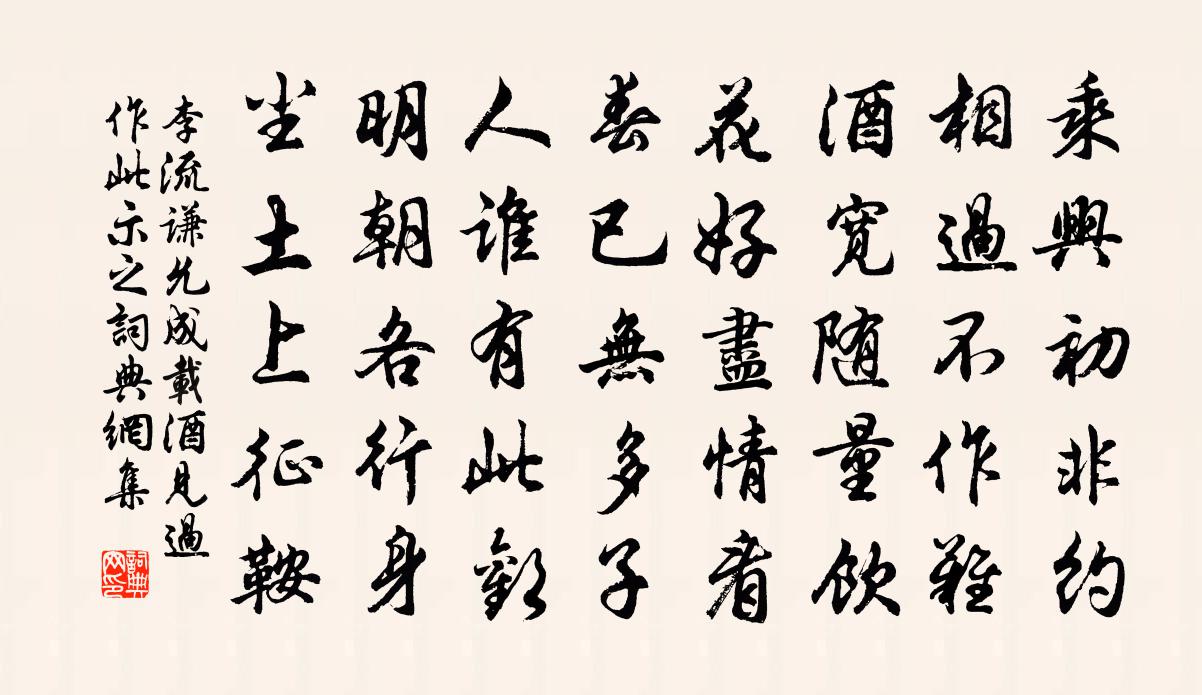 乘興初非約
相過不作難
酒宽随量飲
花好盡情看
春已無多子
人誰有此歡
明朝各行身
尘土上征鞍
李流謙允成載酒見過
作此示之詞典網集
詞典网印